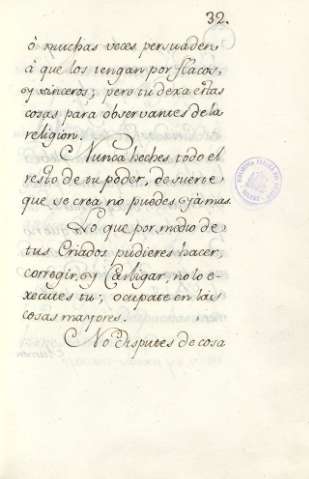 32.
ò muchas veces persuaden
à que los tengan por flacos,
y sinceros; pero tu dexa estas
cosas para observantes de la
religion.
Nunca heches todo el
resto de tu poder, de suerte
que se crea no puedes y jamas.
Lo que por medio de
tus Criados pudieres hacer,
corregir, y Castigar, no lo e-
xecutes tu; ocupate en las
cosas mayores.
No disputes de cosa